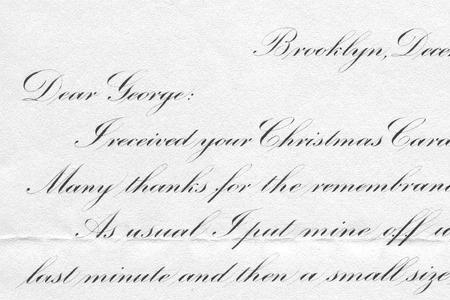 Brooklyn, Dece
Dear George:
I received your Christmas Card
Many thanks for the remembran
As usual I put mine off
last minute and then a small size